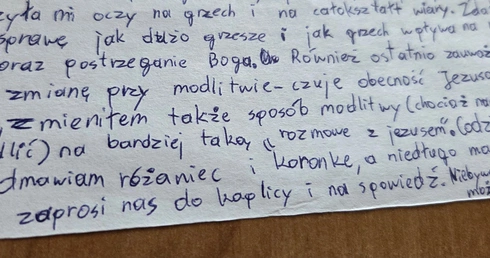 oczy na grzech i na całokształt wiary.
sprawę jak dużo grzeszę i jak grzech wpływa na
oraz postrzeganie Boga. Również ostatnio
zmianę przy modlitwie-czuję obecność Jezusa
zmieniłem także sposób modlitwy (chociaż
na bardziej taką rozmowę z jezusem.
odmawiam różaniec i koronkę, a niedługo
zaprosi nas do kaplicy i na spowiedź.